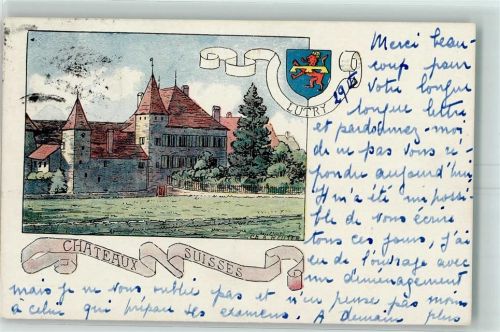 LUTRY
29/5
Merci beau-
coup pour
votre longue
longue lettre
et pardonnez-moi
de ne pas vous ré-
pondre aujourd'hui
Il m'a été impossi-
ble de vous écrire
tous ces jours, j'ai
eu de l'ouvrage avec
un déménagement
CHATEAUX SUISSES
mais je ne vous oublie pas et n'en pense pas moins
à celui qui prépare ses examens. A demain plus